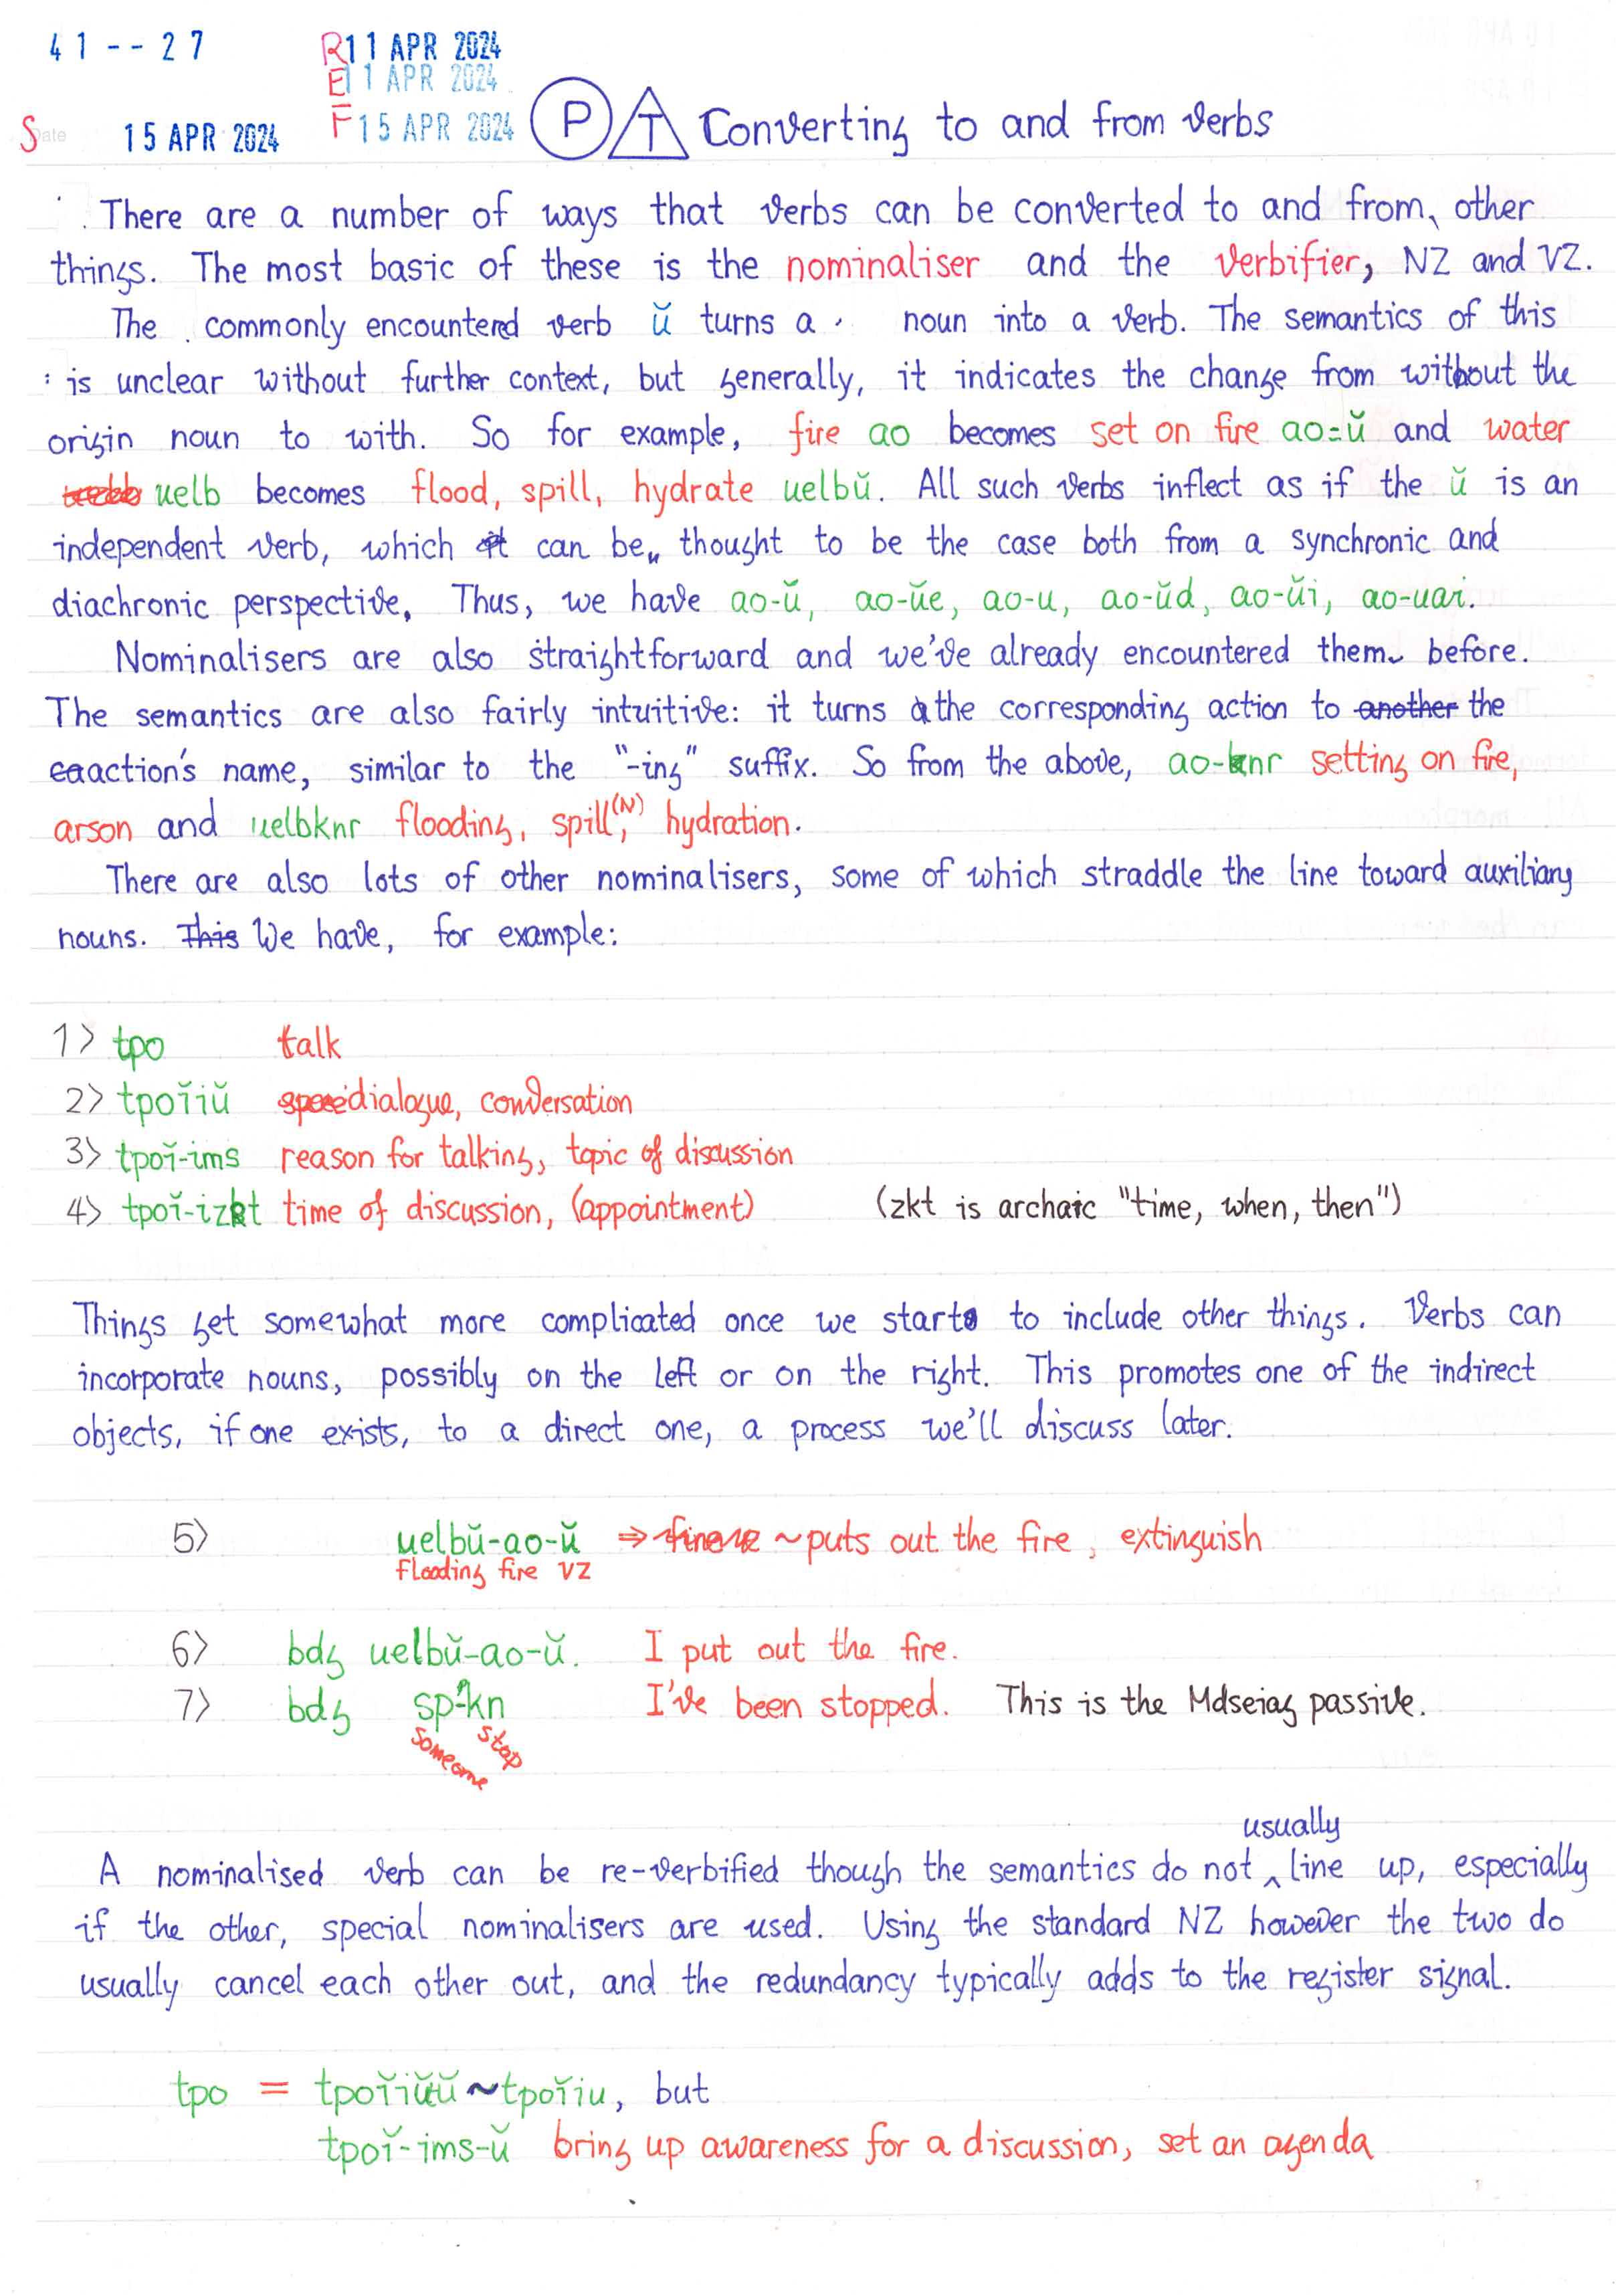 41--27
R11 APR 2024
E11 APR 2024
S Date 15 APR 2024
F15 APR 2024
P T Converting to and from verbs
There are a number of ways that verbs can be converted to and from, other
things. The most basic of these is the nominaliser and the verbifier, NZ and VZ.
The commonly encounterd verb ŭ turns a noun into a verb. The semantics of this
is unclear without further context, but generally, it indicates the change from without the
origin noun to with. So for example, fire ao becomes set on fire ao=ŭ and water
uelb becomes flood, spill, hydrate uelbŭ. All such verbs inflect as if the ŭ is an
independent verb, which can be, thought to be the case both from a synchronic and
diachronic perspective. Thus, we have ao-ŭ, ao-ŭe, ao-u, ao-ŭd, ao-ŭi, ao-uai.
Nominalisers are also straightforward and we've already encountered them before.
The semantics are also fairly intuitive: it turns the corresponding action to another the
action's name, similar to the "-ing" suffix. So from the above, ao-knr setting on fire,
arson and uelbknr flooding, spill(N), hydration.
There are also lots of other nominalisers, some of which straddle the line toward auxiliary
nouns. This We have, for example:
1> tpo talk
2> tpoĭiŭ dialogue, conversation
3> tpoĭ-ims reason for talking, topic of discussion
4> tpoĭ-izkt time of discussion, (appointment) (zkt is archaic "time, when, then")
Things get somewhat more complicated once we start to include other things. Verbs can
incorporate nouns, possibly on the left or on the right. This promotes one of the indirect
objects, if one exists, to a direct one, a process we'll discuss later.
5> uelbŭ-ao-ŭ ⇒ ~puts out the fire, extinguish
flooding fire VZ
6> bdg uelbŭ-ao-ŭ. I put out the fire.
7> bdg sp-kn I've been stopped. This is the Mdseiag passive.
someone stop
usually
A nominalised verb can be re-verbified though the semantics do not ^ line up, especially
if the other, special nominalisers are used. Using the standard NZ however the two do
usually cancel each other out, and the redundancy typically adds to the register signal.
tpo = tpoĭiŭŭ~tpoĭiu, but
tpoĭ-ims-ŭ bring up awareness for a discussion, set an agenda